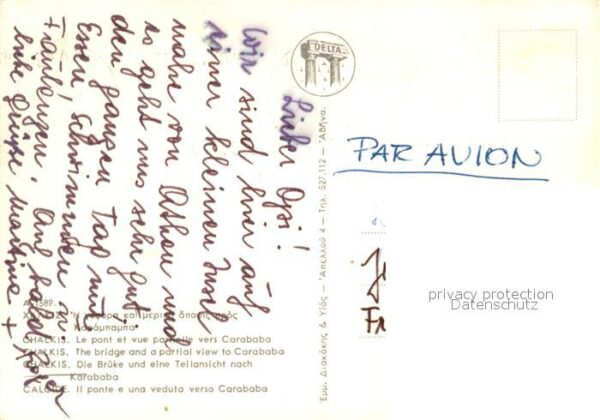 Lieber Opi!
Wir sind hier auf
einer kleinen Insel
nahe von Athen und
es geht uns sehr gut.
den ganzen Tag nur
Essen, schwimmen
+ faulenzen. Auf bald
liebe Grüße Martina +
DELTA
PAR AVION
privacy protection
Datenschutz
Fr
Εμμ. Διακάκης & Υιός – Απελλού 4 – Τηλ. 527.112 – Αθήνα.
1589.
Η γέφυρα και μερική άποψις προς
Καράμπαμπα
CHALKIS. Le pont et vue partielle vers Carababa
CHALKIS. The bridge and a partial view to Carababa
CHALKIS. Die Brüke und eine Teilansicht nach
Karababa
CALCIDE. Il ponte e una veduta verso Carababa